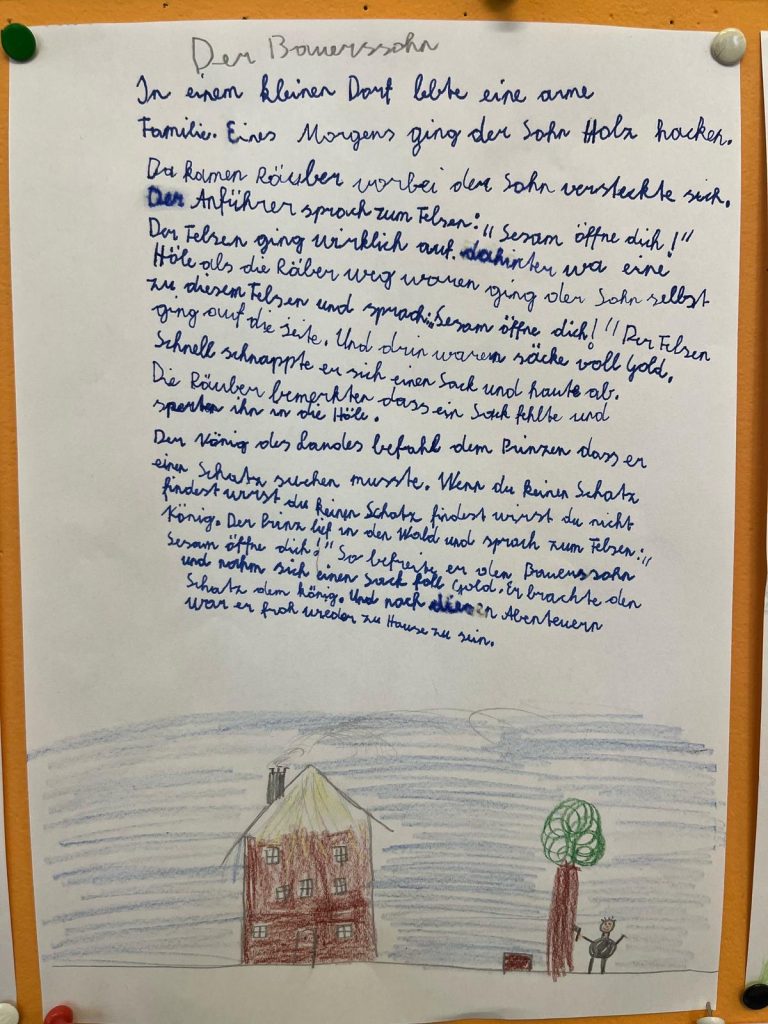 Der Bauerssohn
In einem kleinen Dorf lebte eine arme
Familie. Eines Morgens ging der Sohn Holz hacken.
Da kamen Räuber vorbei der Sohn versteckte sich.
Der Anführer sprach zum Felsen: „Sesam öffne dich!"
Der Felsen ging wirklich auf. dahinter wa eine
Höle als die Räber weg waren ging der Sohn selbst
zu diesem Felsen und sprach: „Sesam öffne dich!" Der Felsen
ging auf die seite. Und drin waren säcke voll Gold.
Schnell schnappte er sich einen Sack und haute ab.
Die Räuber bemerkten dass ein Sack fehlte und
sperten ihn in die Höle.
Der König des Landes befahl dem Prinzen dass er
einen Schatz suchen musste. Wenn du keinen Schatz
findest wirst du keinen Schatz findest wirst du nicht
König. Der Prinz lief in den Wald und sprach zum Felsen: „
Sesam öffne dich!" So befreite er den Bauerssohn
und nahm sich einen Sack foll Gold. Er brachte den
Schatz dem König. Und nach Abenteuern
war er froh wieder zu Hause zu sein.